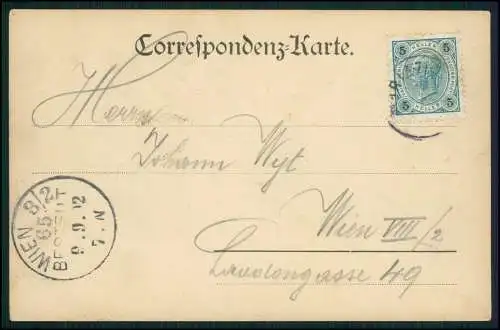 Correspondenz-Karte.
5 HELLER 5
5 HELLER 5
Herrn
Johann Wyt
Wien VIII/2
Laudongasse 49
WIEN 8/2
65
BESTELLT
9.9.02
7.N